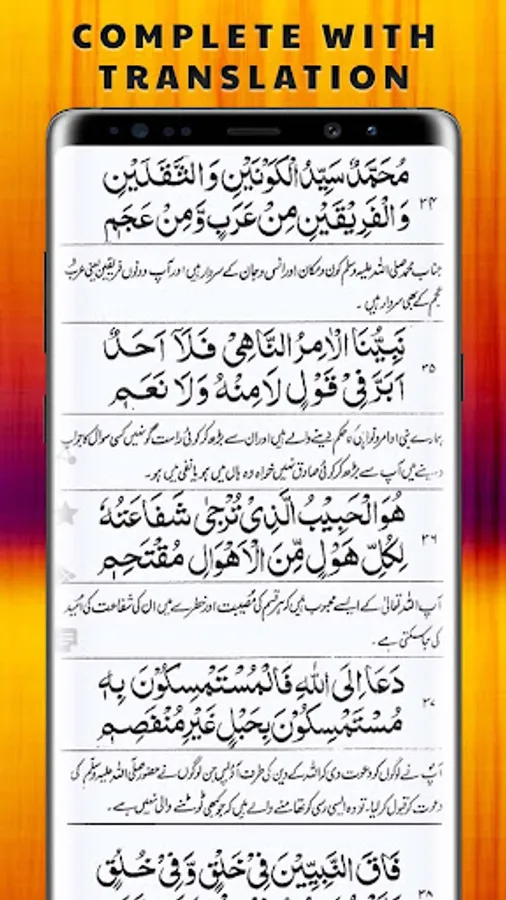 COMPLETE WITH
TRANSLATION
مُحَمَّدٌ سَيِّدُ الْكَوْنَيْنِ وَالثَّقَلَيْنِ
۳۴
وَالْفَرِيْقَيْنِ مِنْ عَرَبٍ وَّمِنْ عَجَمٖ
جناب محمد صلی اللہ علیہ وسلم کون و مکان اور انس و جان کے سردار ہیں اور آپ دونوں فریقین یعنی عرب
عجم کے بھی سردار ہیں ۔
نَبِيُّنَا الْاٰمِرُ النَّاهِىْ فَلَآ اَحَدٌ
۳۵
اَبَرَّ فِىْ قَوْلِ لَا مِنْهُ وَلَا نَعَمٖ
ہمارے نبی اوامر و نواہی کا حکم دینے والے ہیں اور ان سے بڑھ کر کوئی راست گو نہیں کسی سوال کا جواب
دینے میں آپ سے بڑھ کر کوئی صادق نہیں خواہ وہ ہاں میں ہو یا نفی میں ہو۔
هُوَ الْحَبِيْبُ الَّذِىْ تُرْجٰى شَفَاعَتُهٗ
۳۶
لِكُلِّ هَوْلٍ مِّنَ الْاَهْوَالِ مُقْتَحِمٖ
آپ اللہ تعالیٰ کے ایسے محبوب ہیں کہ ہر قسم کی مصیبت اور خطرے میں ان کی شفاعت کی امید
کی جاسکتی ہے ۔
دَعَا اِلَى اللهِ فَالْمُسْتَمْسِكُوْنَ بِهٖ
۳۷
مُسْتَمْسِكُوْنَ بِحَبْلٍ غَيْرِ مُنْفَصِمٖ
آپ نے لوگوں کو دعوت دی کہ اللہ کے دین کی طرف آؤ پس جن لوگوں نے حضور صلی اللہ علیہ وسلم کی
دعوت کو قبول کر لیا۔ تو وہ ایسی رسی کو تھامنے والے ہیں کہ جو کبھی ٹوٹنے والی نہیں ہے ۔
فَاقَ النَّبِيِّيْنَ فِىْ خَلْقٍ وَّفِىْ خُلُقٍ
۳۸